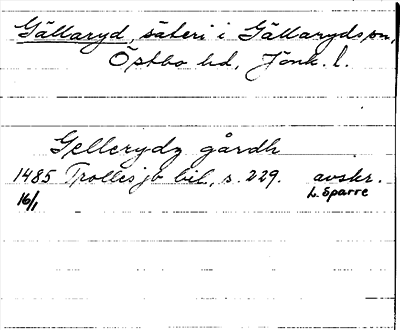 Gällaryd, säteri i Gällaryds sn,
Östbo hd, Jönk. l.
Gellerydz gårdh
1485 Trolles jb bil, s. 229. avskr.
16/1 L. Sparre